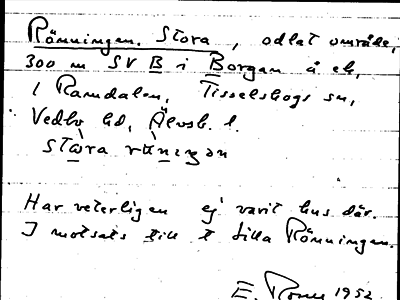 Rönningen. Stora, odlat område,
300 m SV B i Borgan å ek,
i Ramdalen, Tisselskogs sn,
Vedbo hd, Älvsb. l.
Har veterligen ej varit hus där.
I motsats till t lilla Rönningen.
E. 1952